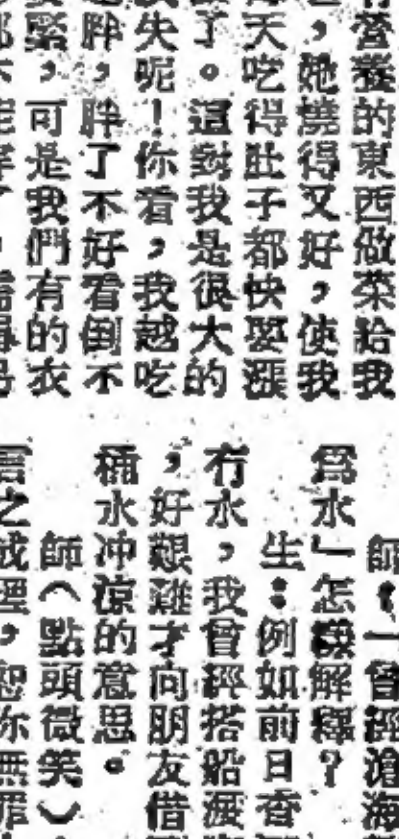 營養的東西做菜給我
,她燒得又好,使我
天吃得肚子都快要漲
了。這對我是很大的
失呢!你看,我越吃
胖,胖了不好看倒不
緊,可是我們有的衣
師:「曾經滄海
爲水」怎樣解釋?
生:例如前日香
冇水,我曾經搭船渡
,好艱難才向朋友借
桶水冲涼的意思。
師(點頭微笑)
言之成理,恕你無罪